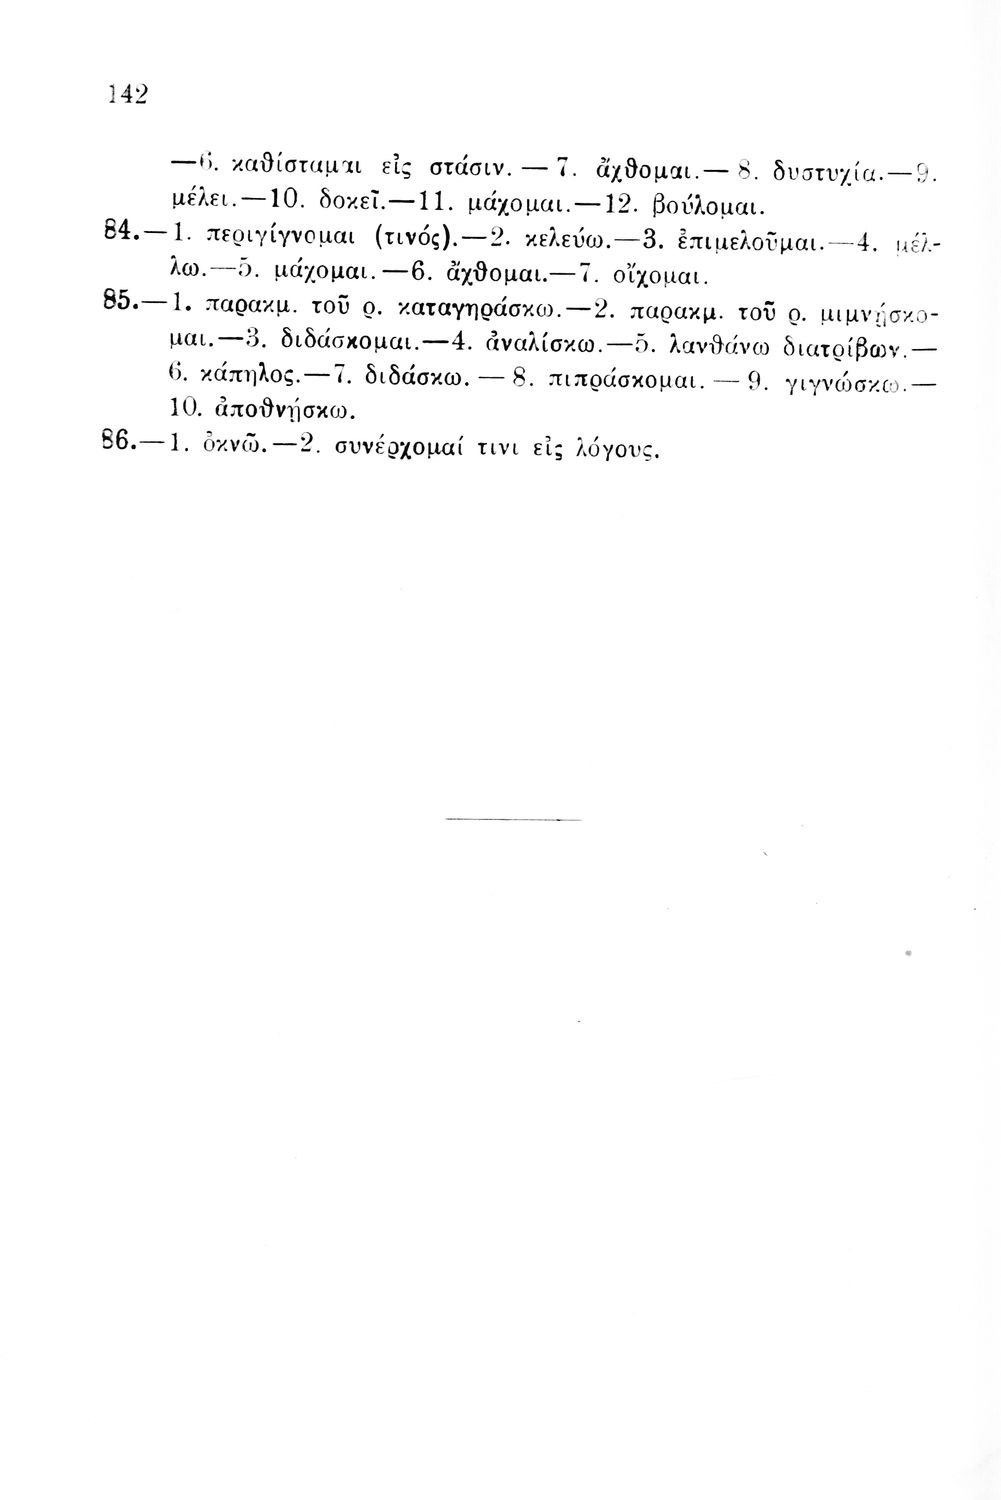 142
—6. καθίσταμαι εἰς στάσιν. — 7. ἄχθομαι.— 8. δυστυχία.—9.
μέλει.—10. δοκεῖ.—11. μάχομαι.—12. βούλομαι.
84.—1. περιγίγνομαι (τινός).—2. κελεύω.—3. ἐπιμελοῦμαι.—4. μέλ-
λω.—5. μάχομαι.—6. ἄχθομαι.—7. οἴχομαι.
85.—1. παρακμ. τοῦ ρ. καταγηράσκω.—2. παρακμ. τοῦ ρ. μιμνήσκο-
μαι.—3. διδάσκομαι.—4. ἀναλίσκω.—5. λανθάνω διατρίβων.—
6. κάπηλος.—7. διδάσκω. — 8. πιπράσκομαι. — 9. γιγνώσκω.—
10. ἀποθνήσκω.
86.—1. ὀκνῶ.—2. συνέρχομαί τινι εἰς λόγους.